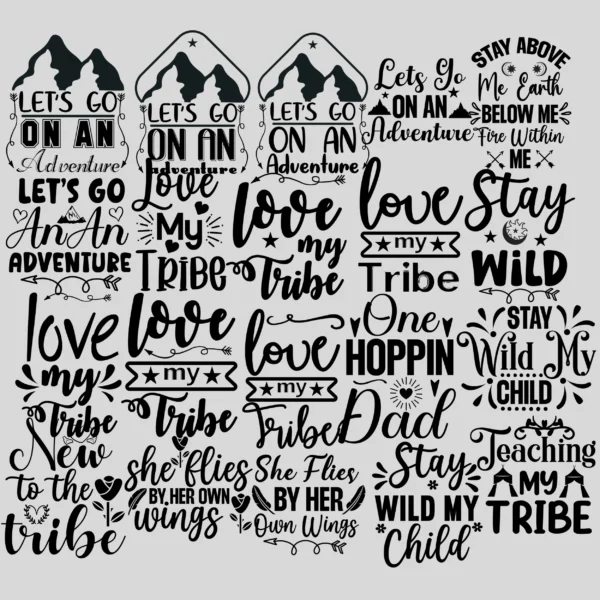 LET'S GO
ON AN
Adventure
LET'S GO
ON AN
adventure
LET'S GO
ON AN
Adventure
Lets Go
ON AN
Adventure
STAY ABOVE
Me Earth
BELOW ME
Fire Within
ME
LET'S GO
An An
ADVENTURE
Love
My
TRIBE
love
my
Tribe
love
my
Tribe
Stay
WILD
love
my
Tribe
love
my
Tribe
love
my
Tribe
One
HOPPIN
Dad
STAY
Wild My
CHILD
New
to the
tribe
she flies
BY HER OWN
wings
She Flies
BY HER
Own Wings
Stay
WILD MY
Child
Teaching
MY
TRIBE